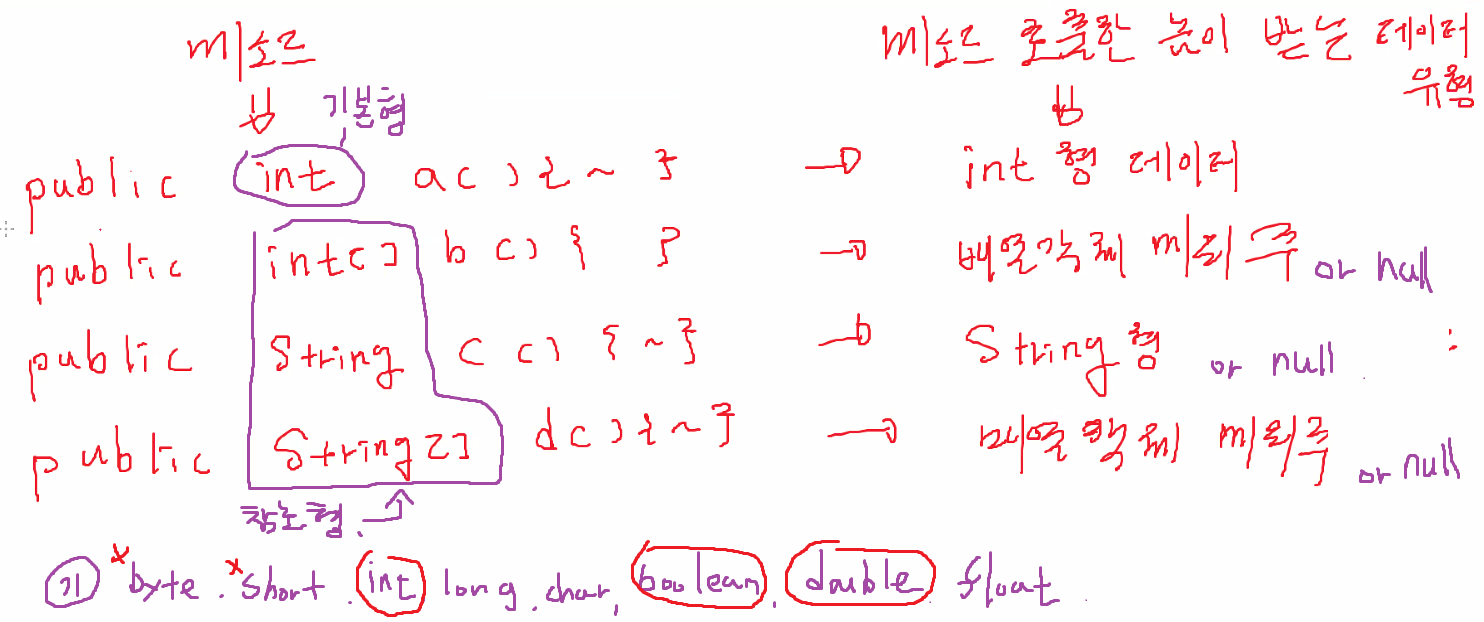 메소드 메소드 호출한 놈이 받는 데이터
기본형 유형
public int a( ) { ~ } → int형 데이터
public int[] b( ) { } → 배열객체 메모리 주 or null
public String c( ) { ~ } → String형 or null
public String[] d( ) { ~ } → 배열객체 메모리 주 or null
참조형.
기 *byte. *short. int long. char, boolean, double. float.